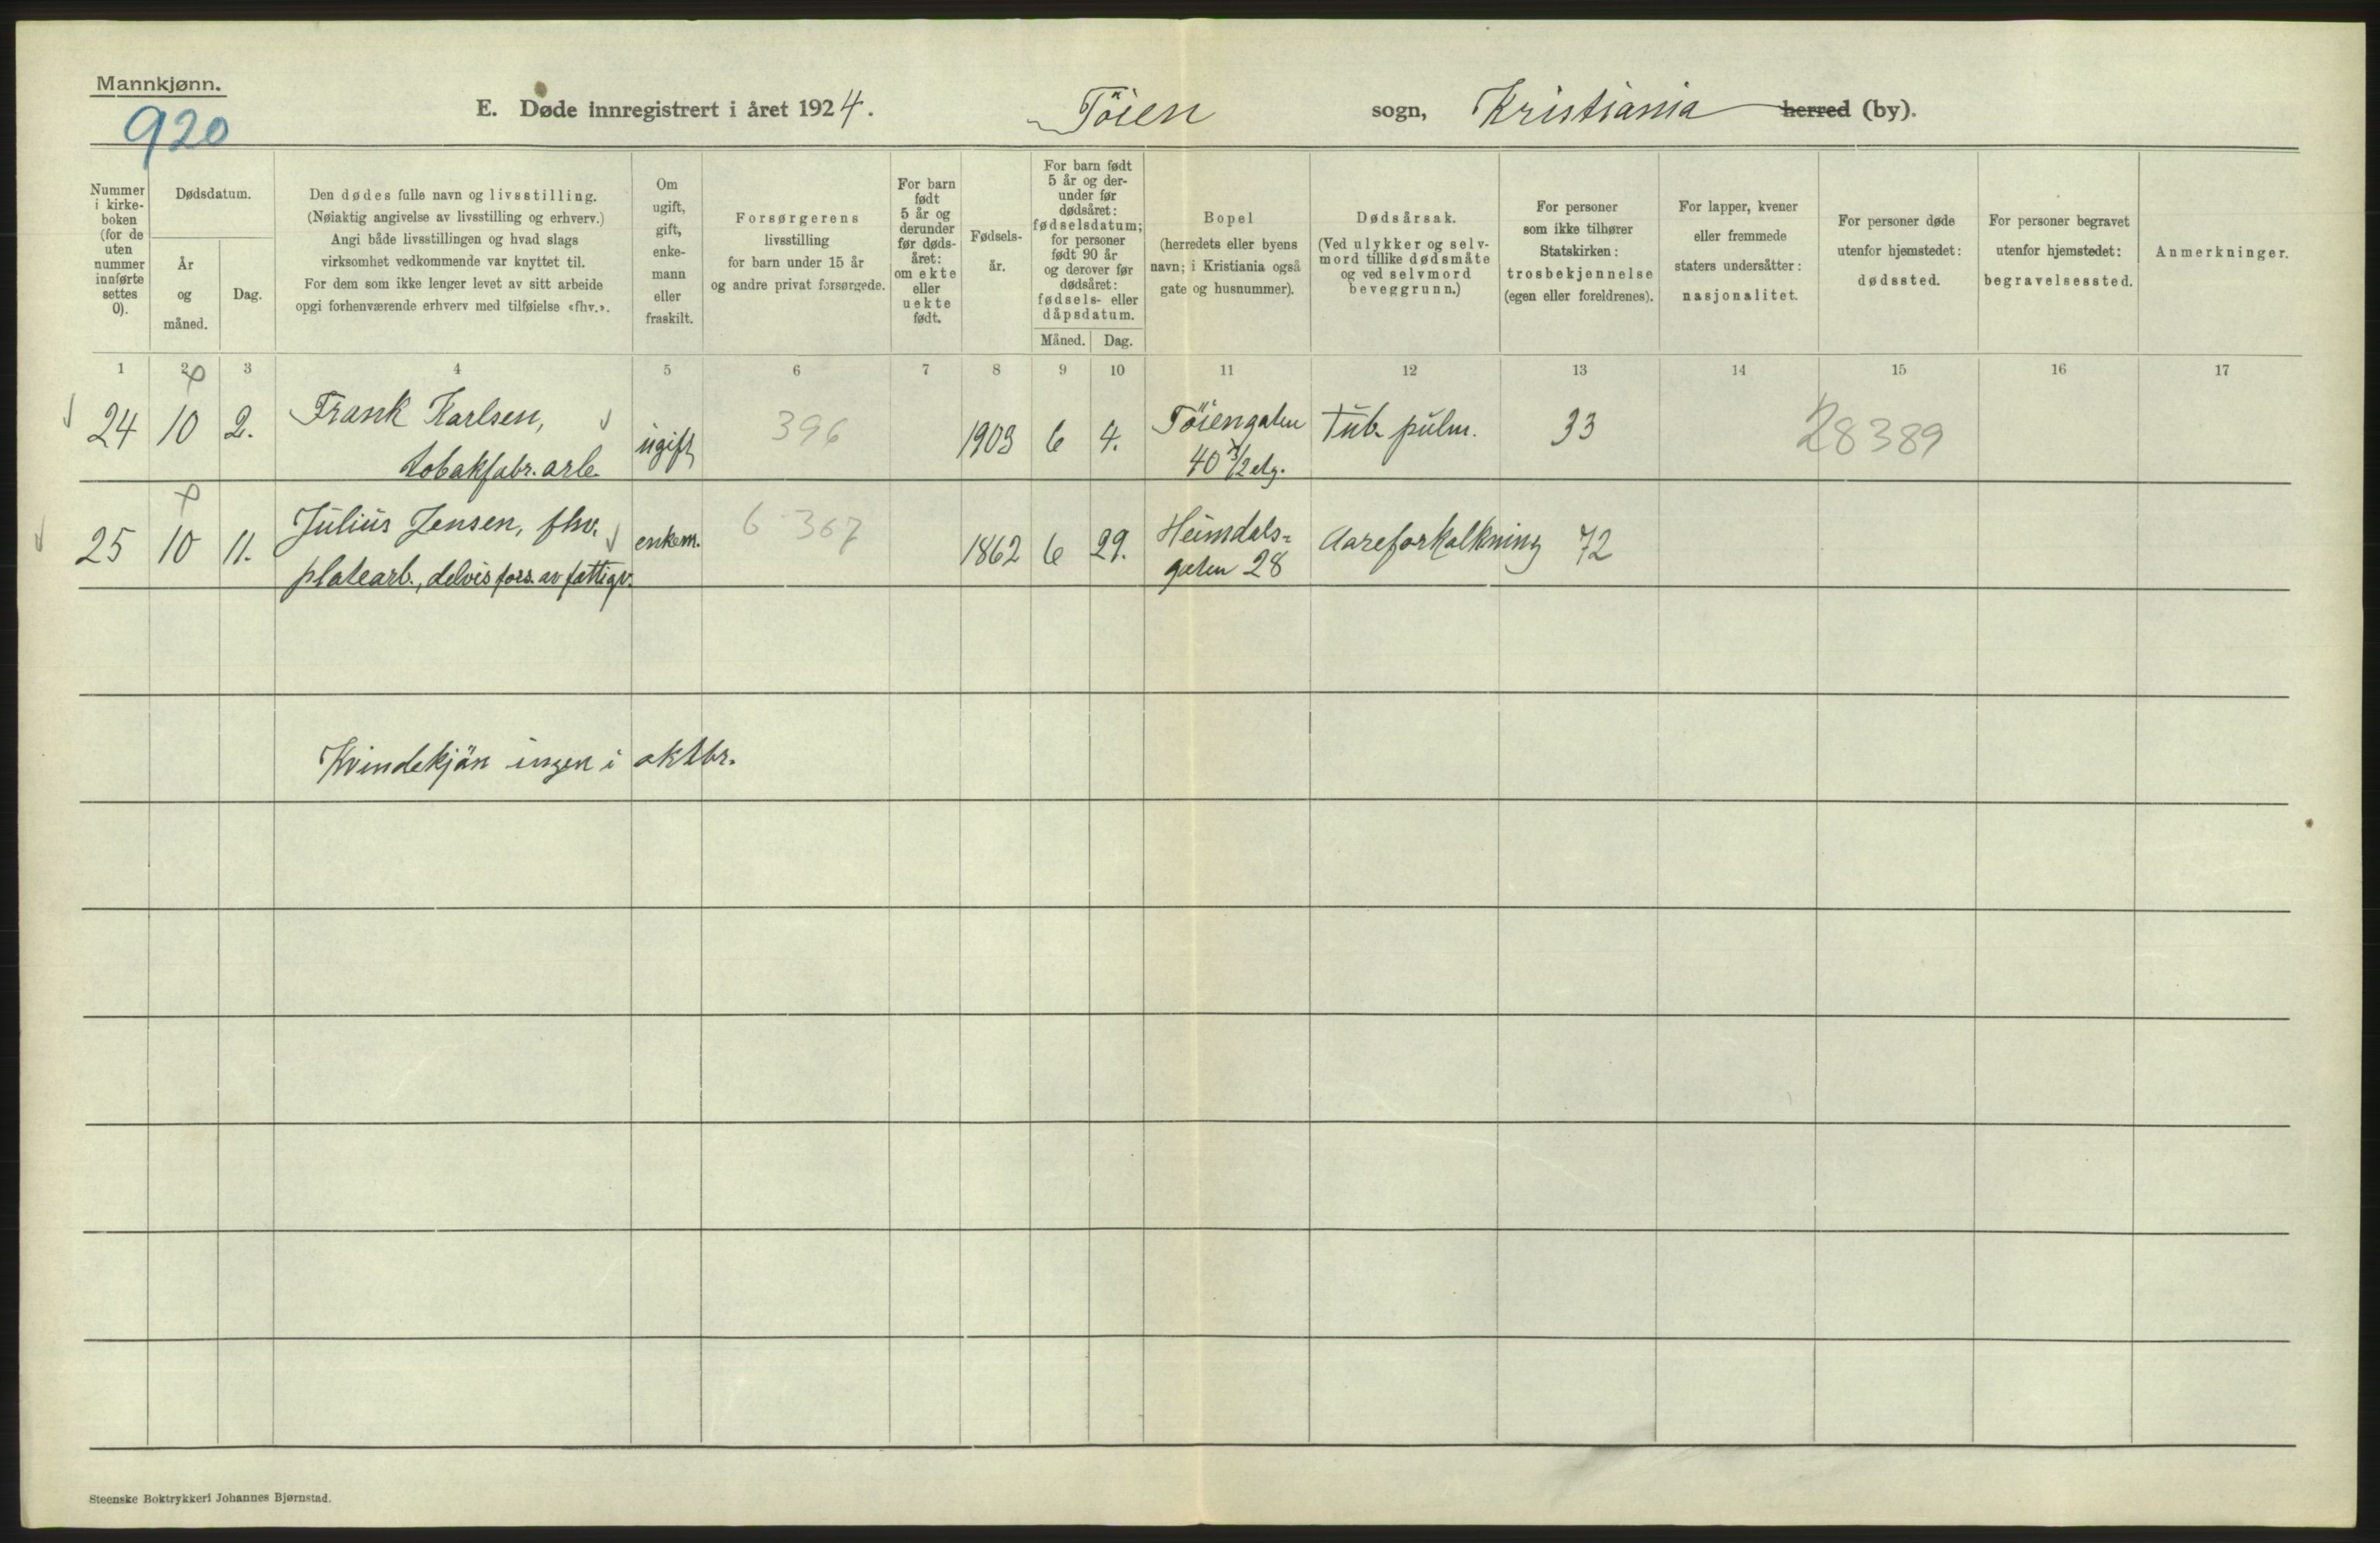 Mannkjønn.
920
E. Døde innregistrert i året 1924.
Töien sogn, Kristiania herred (by).
Nummer i kirke-boken (for de uten nummer innførte settes 0).
Dødsdatum.
År og måned.
Dag.
Den dødes fulle navn og livsstilling.
(Nøiaktig angivelse av livsstilling og erhverv.)
Angi både livsstillingen og hvad slags
virksomhet vedkommende var knyttet til.
For dem som ikke lenger levet av sitt arbeide
opgi forhenværende erhverv med tilføielse «fhv.».
Om ugift, gift, enke-mann eller fraskilt.
Forsørgerens
livsstilling
for barn under 15 år
og andre privat forsørgede.
For barn født 5 år og derunder før døds-året: om ekte eller uekte født.
Fødsels-år.
For barn født 5 år og der-under før dødsåret: fødselsdatum; for personer født 90 år og derover før dødsåret: fødsels- eller dåpsdatum.
Måned. Dag.
Bopel
(herredets eller byens
navn; i Kristiania også
gate og husnummer).
Dødsårsak.
(Ved ulykker og selv-
mord tillike dødsmåte
og ved selvmord
beveggrunn.)
For personer
som ikke tilhører
Statskirken:
trosbekjennelse
(egen eller foreldrenes).
For lapper, kvener
eller fremmede
staters undersåtter:
nasjonalitet.
For personer døde
utenfor hjemstedet:
dødssted.
For personer begravet
utenfor hjemstedet:
begravelsessted.
Anmerkninger.
1 2 3 4 5 6 7 8 9 10 11 12 13 14 15 16 17
24 10 2. Frank Karlsen, ugift 396 1903 6 4. Töiengaten Tub. pulm. 33 28389
tobakfabr. arb. 40 3/2 etg.
25 10 11. Julius Jensen, fhv. enkem. 6 367 1862 6 29. Heimdals- Aareforkalkning 72
platearb., delvis fors. av fattigv. gaten 28
Kvindekjön ingen i oktbr.
Steenske Boktrykkeri Johannes Bjørnstad.